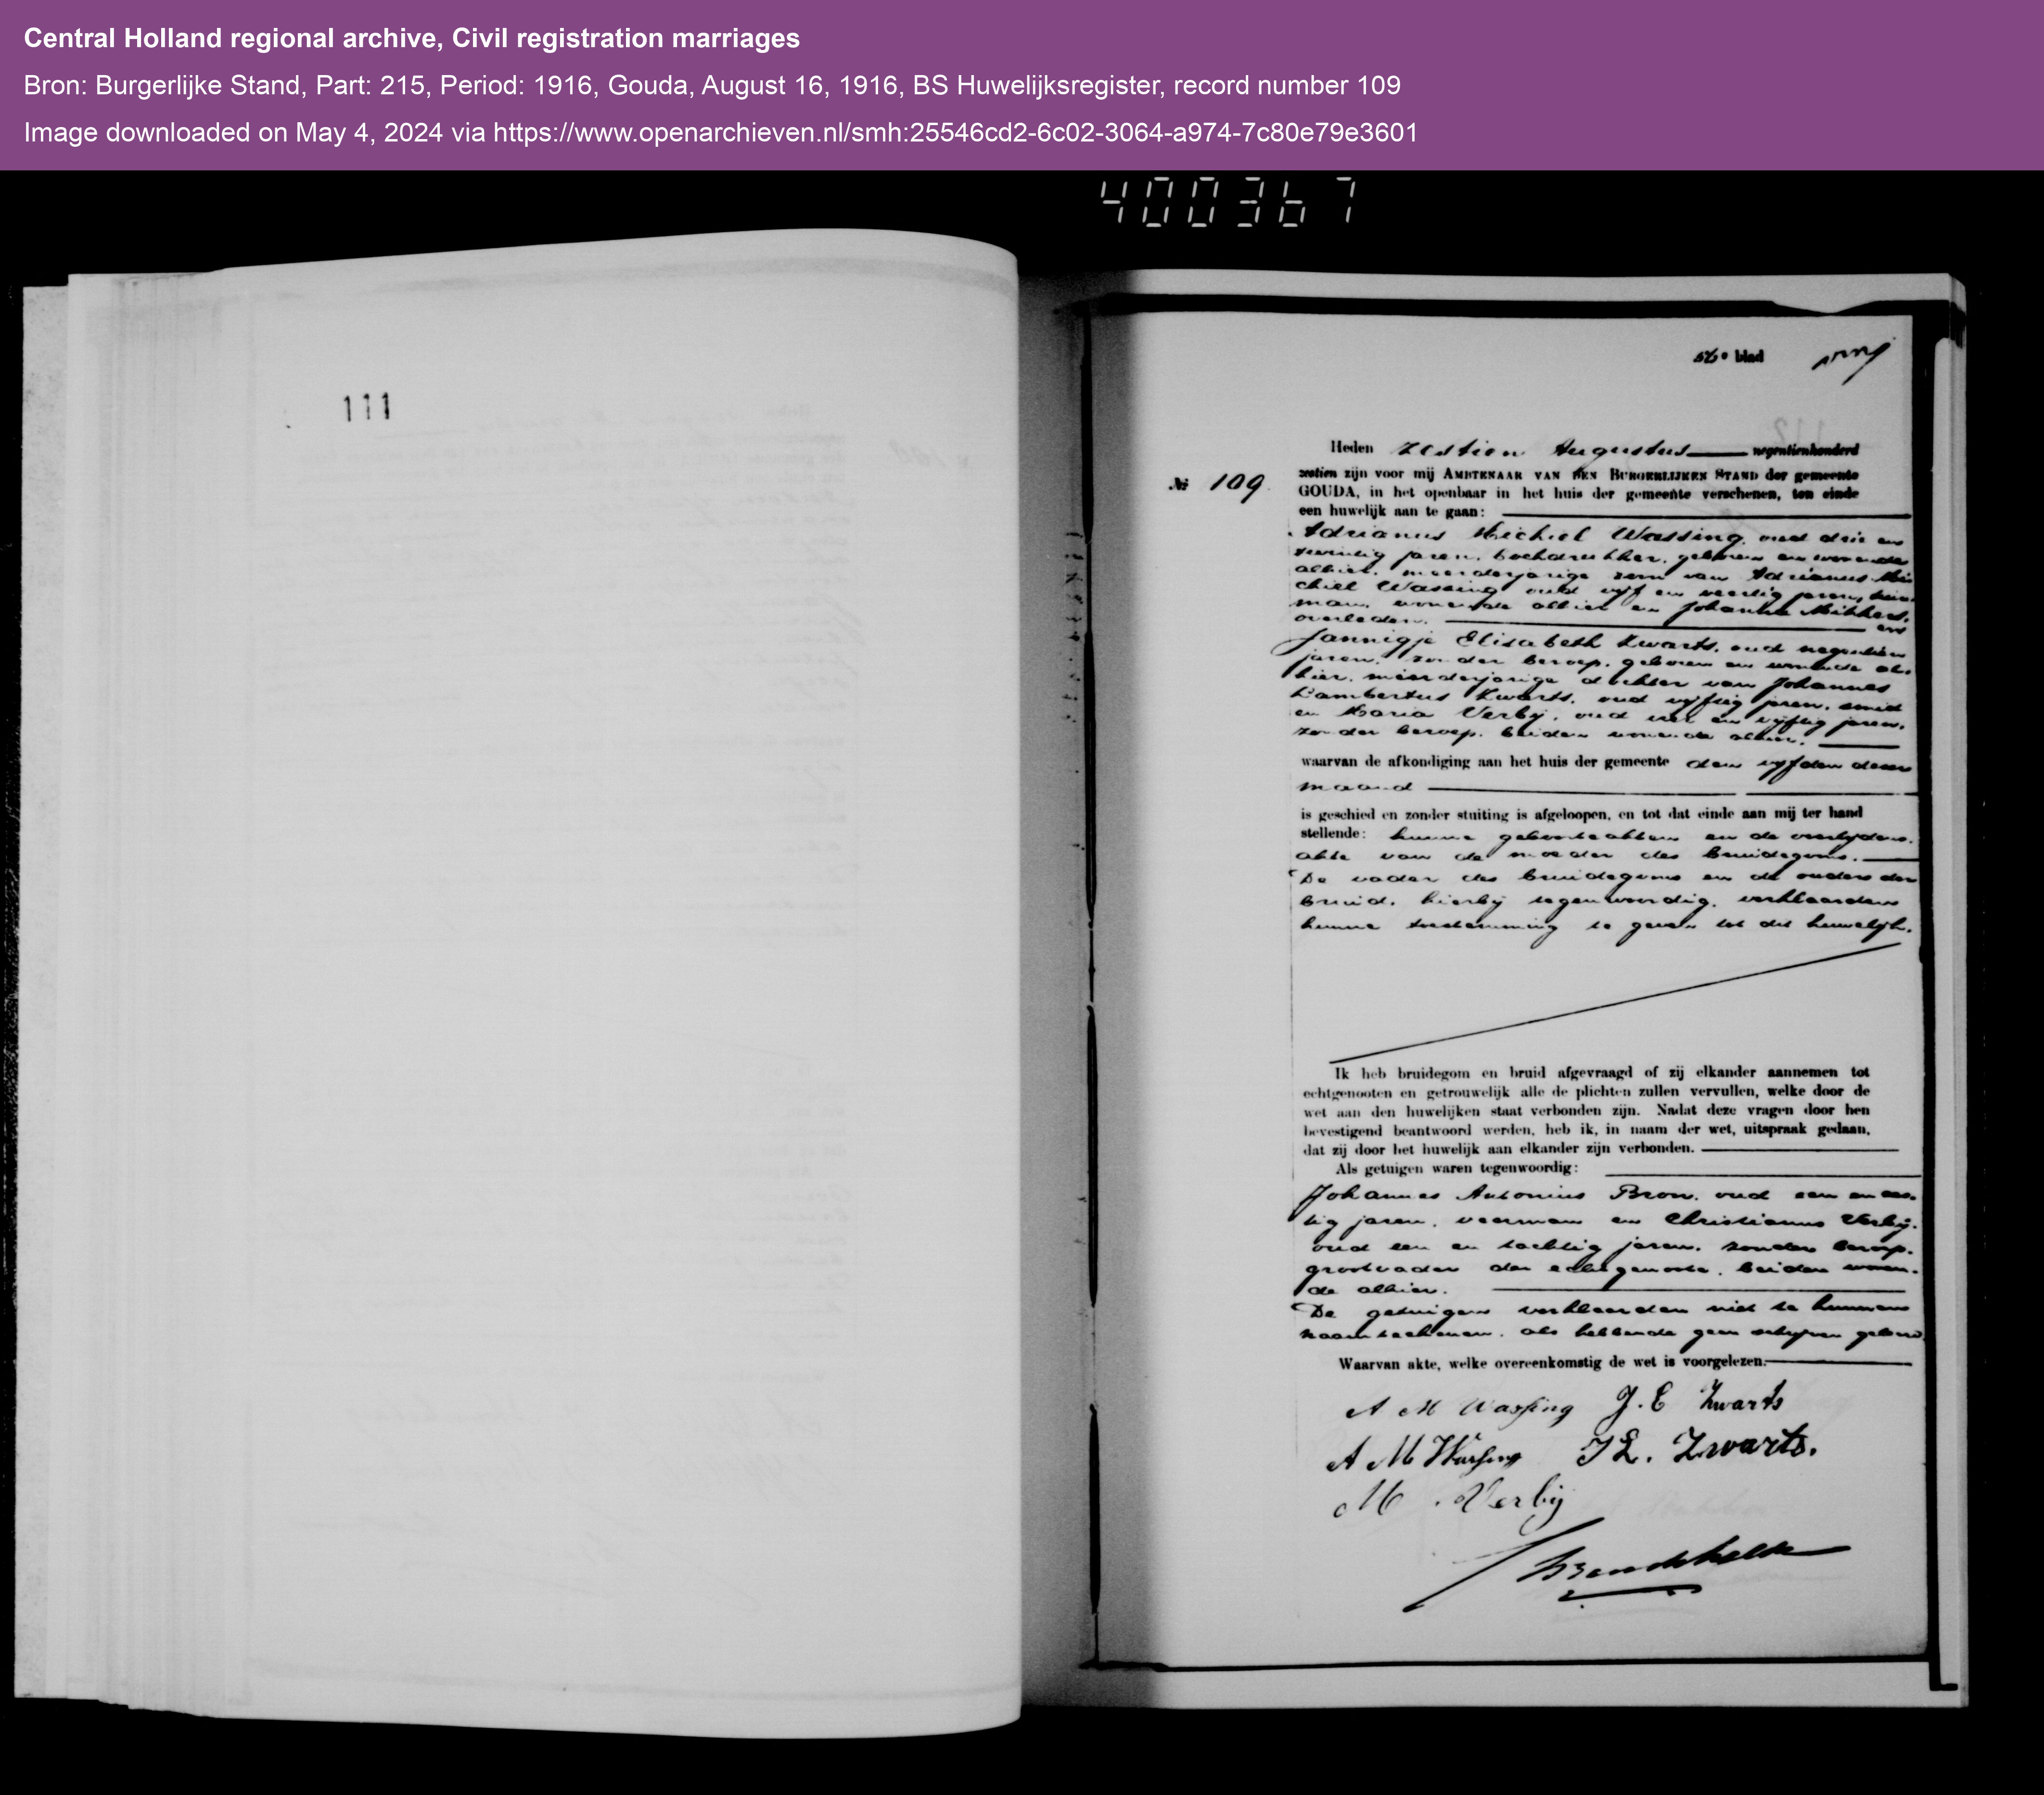 Central Holland regional archive, Civil registration marriages
Bron: Burgerlijke Stand, Part: 215, Period: 1916, Gouda, August 16, 1916, BS Huwelijksregister, record number 109
Image downloaded on May 4, 2024 via https://www.openarchieven.nl/smh:25546cd2-6c02-3064-a974-7c80e79e3601
400367
111
56e blad
Heden zestien Augustus negentienhonderd
zestien zijn voor mij AMBTENAAR VAN DEN BURGERLIJKEN STAND der gemeente
No 109
GOUDA, in het openbaar in het huis der gemeente verschenen, ten einde
een huwelijk aan te gaan:
Adrianus Michiel Wassing, oud drie en
twintig jaren, boekdrukker, geboren en wonende
alhier, meerderjarige zoon van Adrianus Mi-
chiel Wassing oud vijf en veertig jaren,
man, wonende alhier en Johanna Mikkers,
overleden, en
Jannigje Elisabeth Zwarts, oud negentien
jaren, zonder beroep, geboren en wonende al-
hier, minderjarige dochter van Johannes
Lambertus Zwarts, oud vijftig jaren, smid
en Maria Verbij, oud een vijftig jaren,
zonder beroep, beiden wonende alhier,
waarvan de afkondiging aan het huis der gemeente den vijfden dezer
maand
is geschied en zonder stuiting is afgeloopen, en tot dat einde aan mij ter hand
stellende: hunne geboorteakten en de overlijdens-
akte van de moeder des bruidegoms.
De vader des bruidegoms en de ouders der
bruid, hierbij tegenwoordig, verklaarden
hunne toestemming te geven tot dit huwelijk.
Ik heb bruidegom en bruid afgevraagd of zij elkander aannemen tot
echtgenooten en getrouwelijk alle de plichten zullen vervullen, welke door de
wet aan den huwelijken staat verbonden zijn. Nadat deze vragen door hen
bevestigend beantwoord werden, heb ik, in naam der wet, uitspraak gedaan,
dat zij door het huwelijk aan elkander zijn verbonden.
Als getuigen waren tegenwoordig:
Johannes Antonius Bron, oud een en zes-
tig jaren, voerman en Christianus Verbij,
oud een en tachtig jaren, zonder beroep,
grootvader der echtgenoote, beiden wonen-
de alhier.
De getuigen verklaarden niet te kunnen
naamteekenen, als hebbende geen schrijven geleerd.
Waarvan akte, welke overeenkomstig de wet is voorgelezen.
A M Wassing J. E Zwarts
A M Wassing J L. Zwarts.
M. Verbij